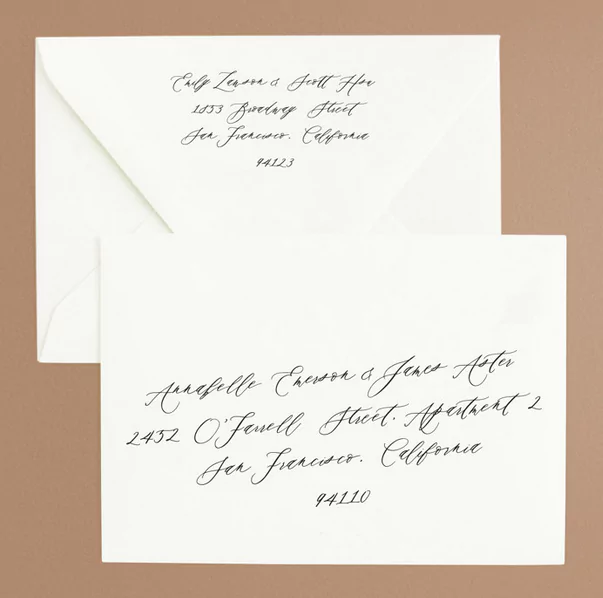 Emily Lawson & Scott Hsu
1853 Broadway Street
San Francisco, California
94123
Annabelle Emerson & James Aster
2452 O'Farrell Street, Apartment 2
San Francisco, California
94110